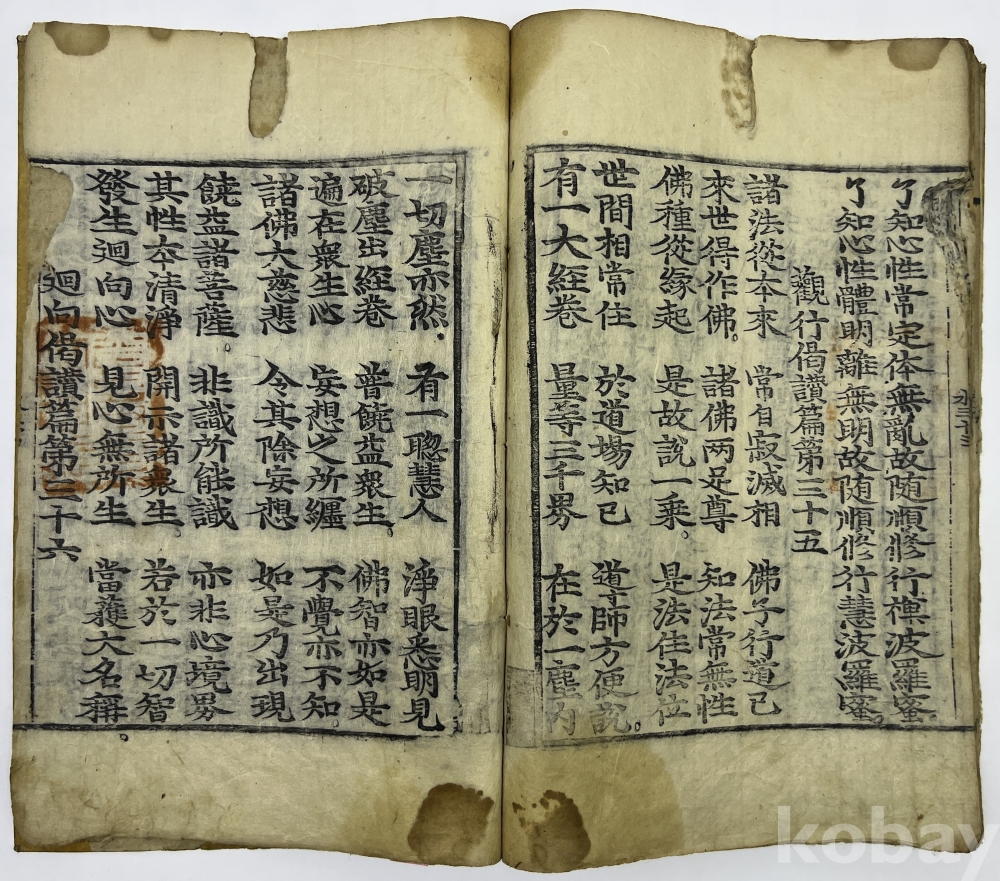 了知心性常定体無亂故随順修行禅波羅蜜
了知心性體明離無明故随順修行慧波羅蜜
觀行偈讃篇第三十五
諸法從本來 常自寂滅相 佛子行道已
來世得作佛 諸佛两足尊 知法常無性
佛種從緣起 是故說一乘 是法住法位
世間相常住 於道場知已 導師方便說
有一大經卷 量等三千界 在於一塵內
一切塵亦然 有一聰慧人 淨眼悉明見
破塵出經卷 普饒益衆生 佛智亦如是
遍在衆生心 妄想之所纏 不覺亦不知
諸佛大慈悲 令其除妄想 如是乃出現
饒益諸菩薩 非識所能識 亦非心境界
其性本清淨 開示諸衆生 若於一切智
發生迴向心 見心無所生 當獲大名稱
迴向偈讃篇第三十六
kobay